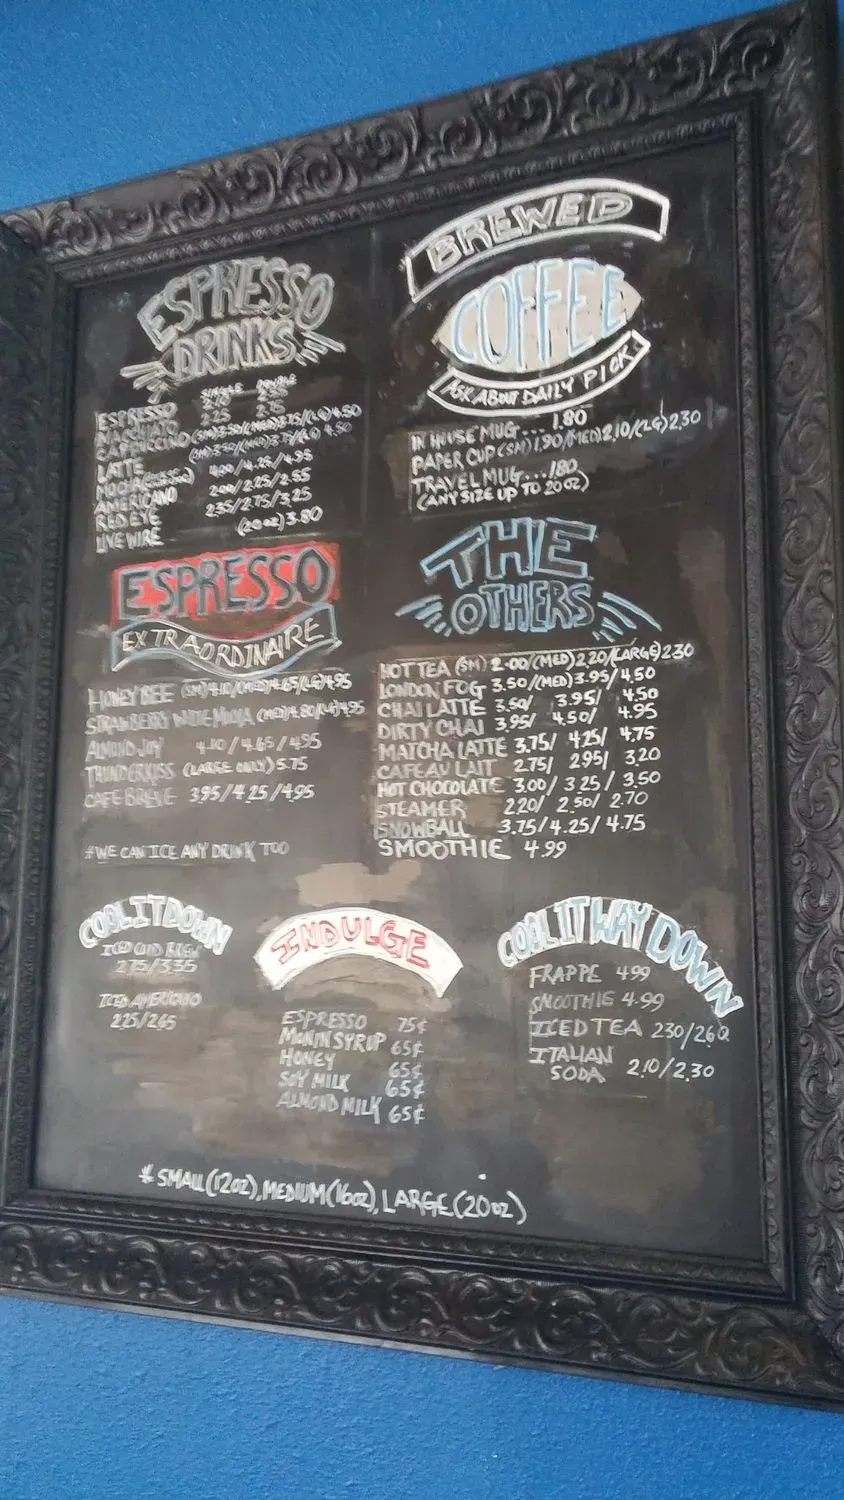 ESPRESSO
DRINKS
SINGLE DOUBLE
ESPRESSO
MACCHIATO 2.25 2.75
CAPPUCCINO (SM) 3.50/(MED) 3.75/(LG) 4.50
LATTE (SM) 3.50/(MED) 3.75/(LG) 4.50
MOCHA 4.00/4.25/4.95
AMERICANO 2.00/2.25/2.55
RED EYE 2.35/2.75/3.25
LIVE WIRE (20oz) 3.80
ESPRESSO
EXTRAORDINAIRE
HONEY BEE (SM) 4.10/(MED) 4.65/(LG) 4.95
STRAWBERRY WHITE MOCHA (MED) 4.80/(LG) 4.95
ALMOND JOY 4.10/4.65/4.95
THUNDERKISS (LARGE ONLY) 5.75
CAFE BREVE 3.95/4.25/4.95
*WE CAN ICE ANY DRINK TOO
BREWED
COFFEE
ASK ABOUT DAILY PICK
IN HOUSE MUG... 1.80
PAPER CUP (SM) 1.90/(MED) 2.10/(LG) 2.30
TRAVEL MUG... 1.80
(ANY SIZE UP TO 20oz)
THE
OTHERS
HOT TEA (SM) 2.00/(MED) 2.20/(LARGE) 2.30
LONDON FOG 3.50/(MED) 3.95/4.50
CHAI LATTE 3.50/ 3.95/ 4.50
DIRTY CHAI 3.95/ 4.50/ 4.95
MATCHA LATTE 3.75/ 4.25/ 4.75
CAFE AU LAIT 2.75/ 2.95/ 3.20
HOT CHOCOLATE 3.00/ 3.25/ 3.50
STEAMER 2.20/ 2.50/ 2.70
SNOWBALL 3.75/4.25/ 4.75
SMOOTHIE 4.99
COOL IT DOWN
ICED COLD BREW
2.75/3.35
ICED AMERICANO
2.25/2.65
INDULGE
ESPRESSO 75¢
MONIN SYRUP 65¢
HONEY 65¢
SOY MILK 65¢
ALMOND MILK 65¢
COOL IT WAY DOWN
FRAPPE 4.99
SMOOTHIE 4.99
ICED TEA 2.30/2.60
ITALIAN
SODA 2.10/2.30
* SMALL (12oz), MEDIUM (16oz), LARGE (20oz)